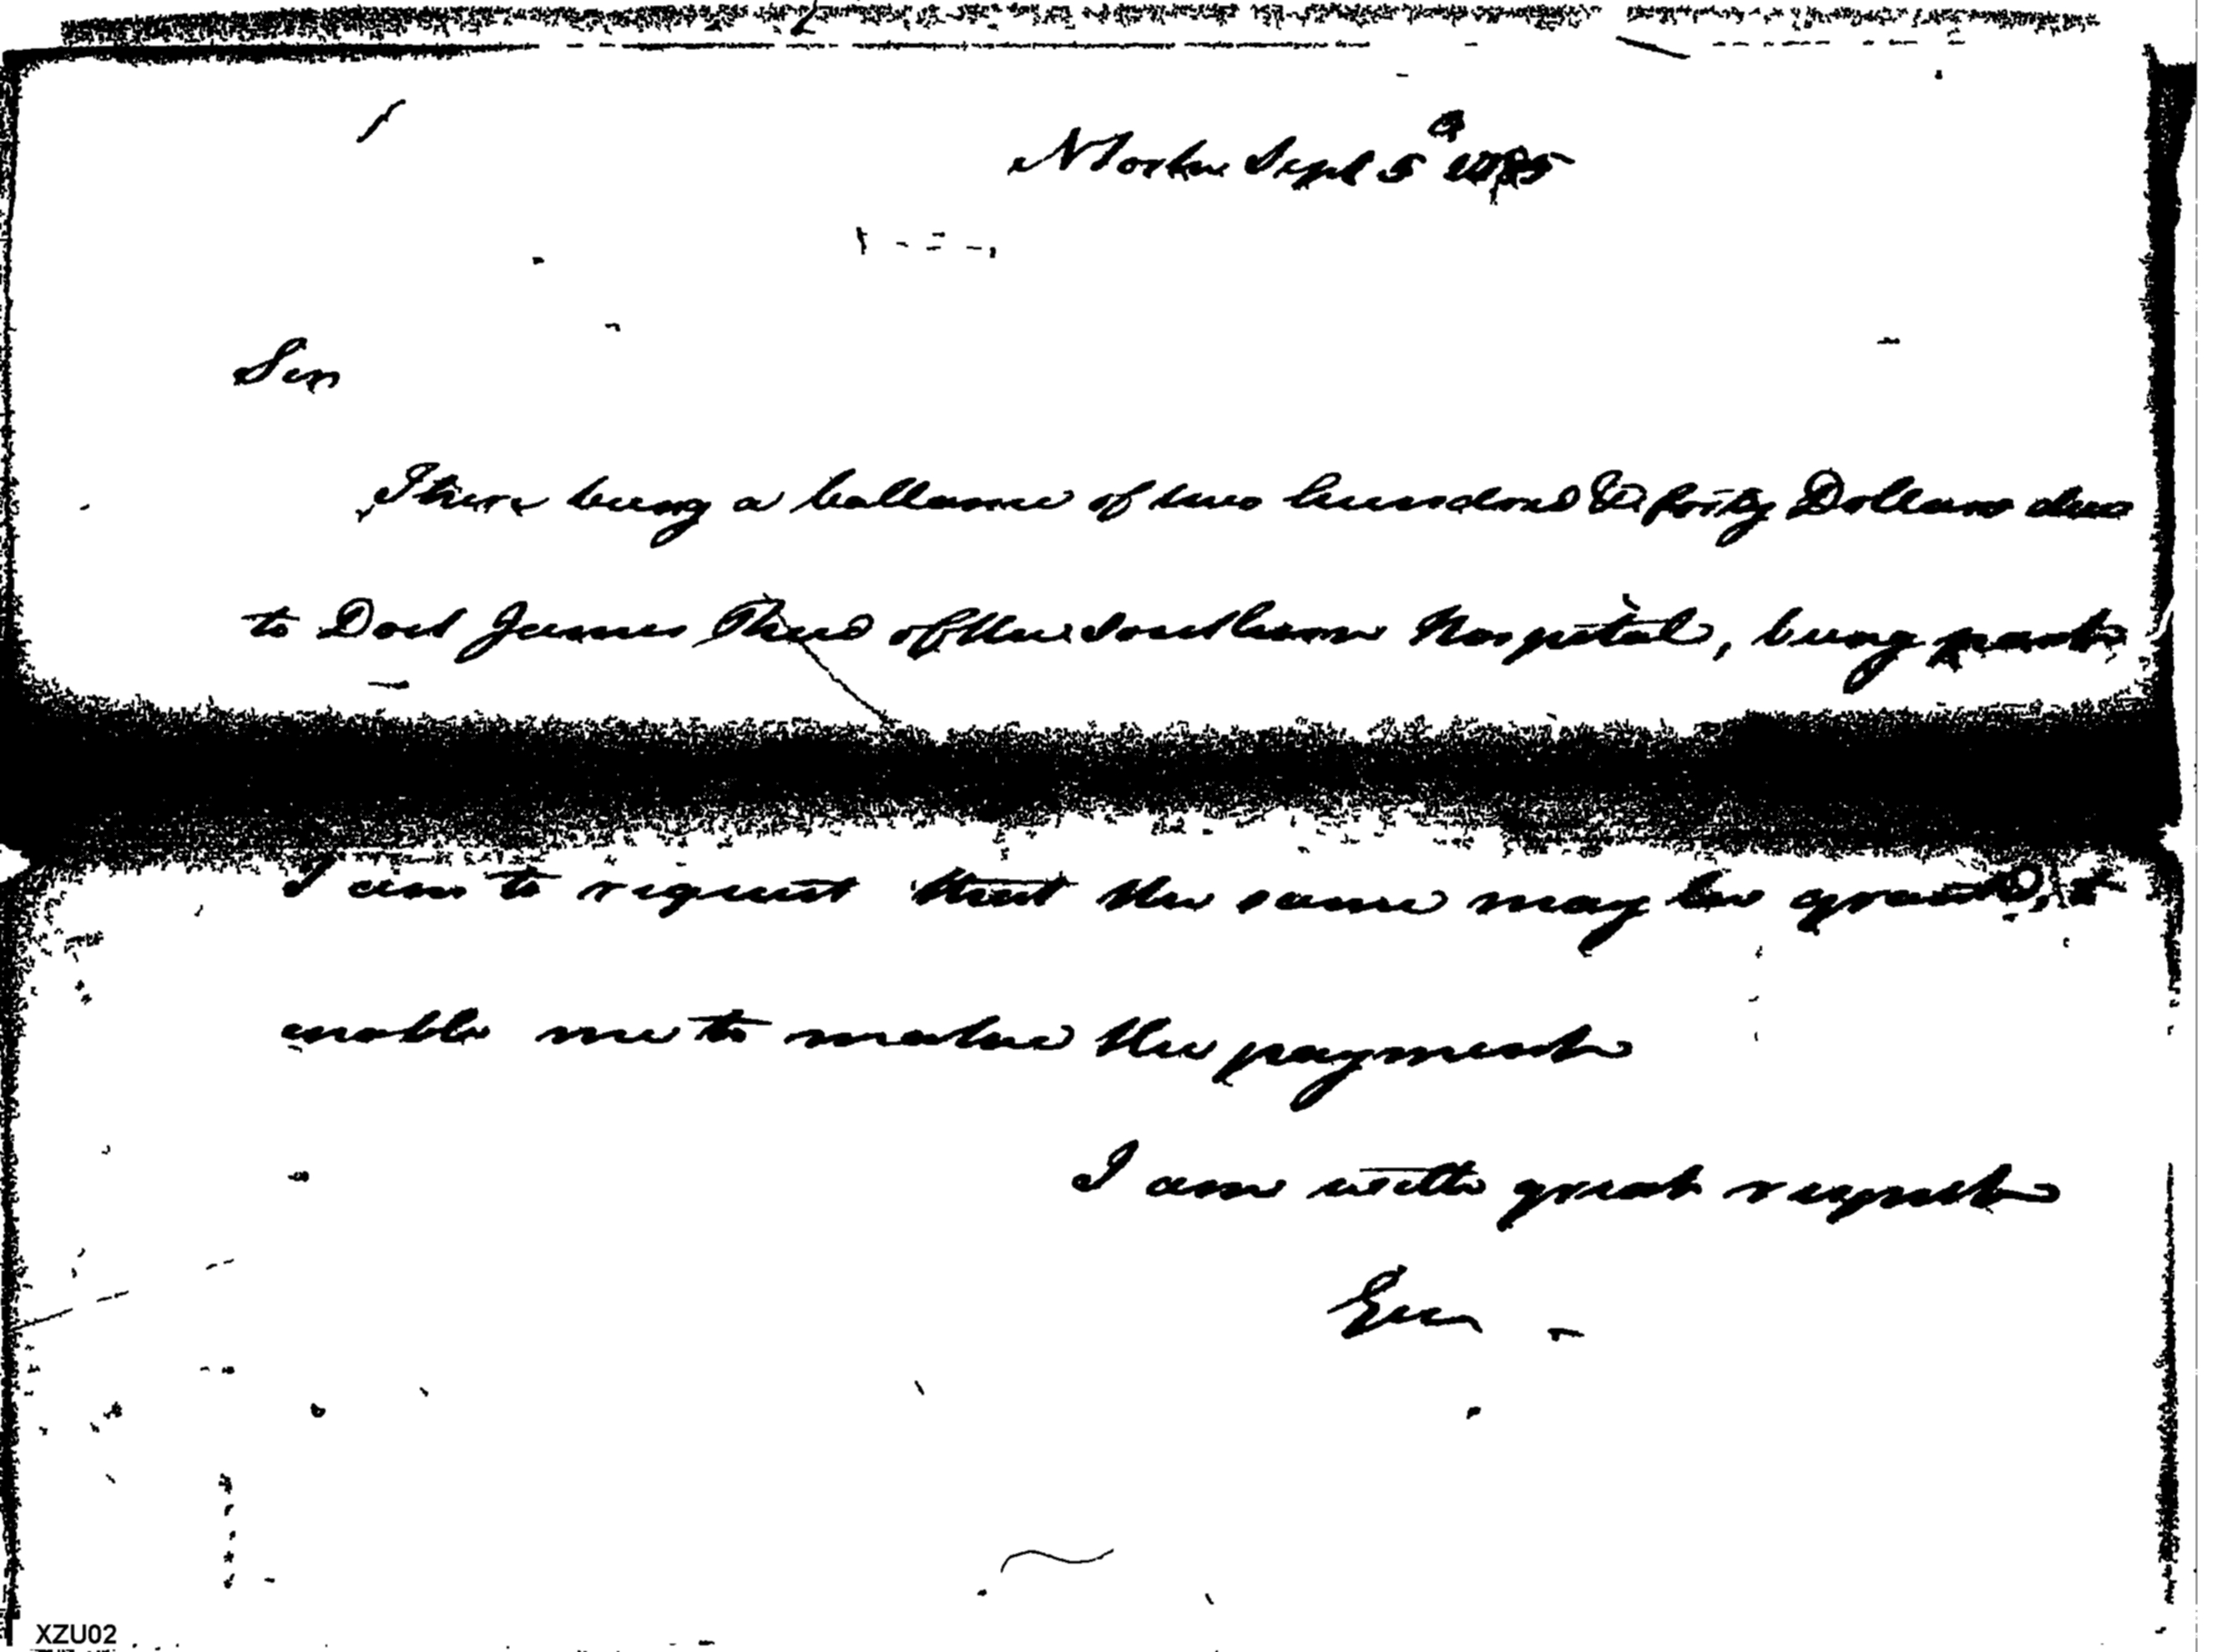 NYork Sept 5th 1785
Sir
There being a ballance of two hundred & forty Dollars due
to Doct James of the Southern Hospital, being part
I am to request that the same may be granted, to
enable me to make the payment
I am with great respect
XZU02